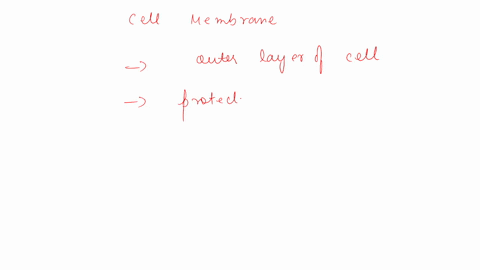 Cell Membrane
→ outer layer of cell
→ protect